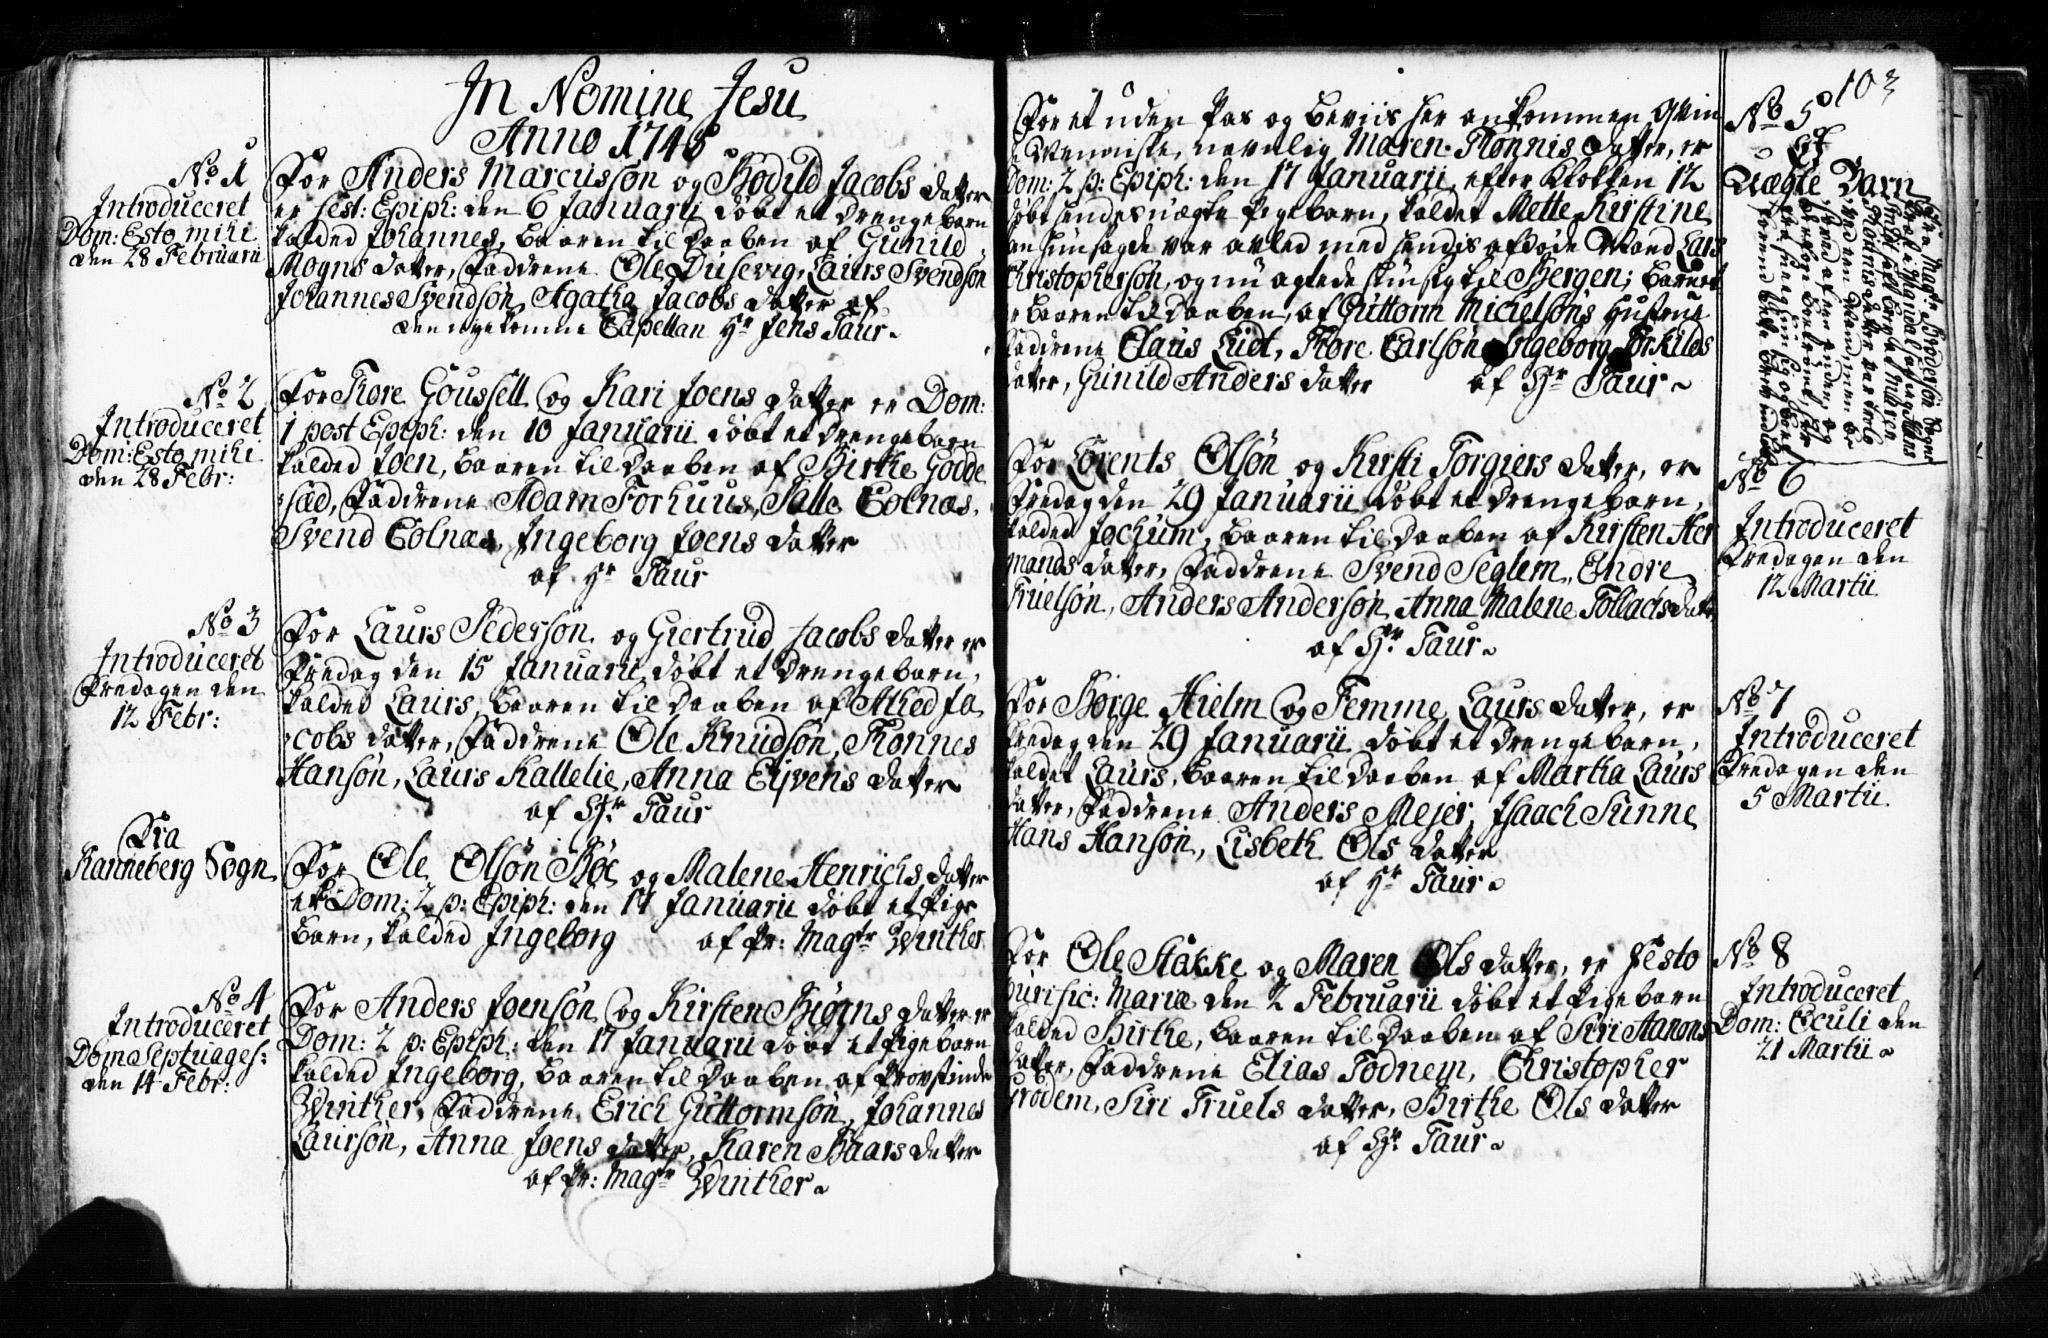 In Nomine Jesu
Anno 1745
No 1
Introduceret
Dom: Esto mihi
den 28 Februarii
For Anders Marcussøn og Bodild Jacobs datter
er Fest: Epiph: den 6 Januarii døbt et drengebarn
kalded Johannes, baaren til daaben af Gunild
Mogns datter, Faddrene Ole Dusevig, Laurs Svendsøn
Johannes Svendsøn, Agatha Jacobs datter af
den Capellan Hr Jens Faur
No 2
Introduceret
Dom: Esto mihi
den 28 Febr:
For Thore Goussell og Kari Joens datter er Dom:
1 post Epiph: den 10 Januarii døbt et drengebarn
kalded Joen, baaren til daaben af Birthe Godde
sæd, Faddrene Adam Forhuus, Salle Eolnæs,
Svend Eolnæs, Ingeborg Joens datter
af Hr Faur
No 3
Introduceret
Fredagen den
12 Febr:
For Laurs Pedersøn og Giertrud Jacobs datter er
Fredag den 15 Januarii døbt et drengebarn,
kalded Laurs, baaren til daaben af Alhed Ja
cobs datter, Faddrene Ole Knudsøn, Thonnes
Hansøn, Laurs Kallelie, Anna Eyvens datter
af Hr Faur
Fra
Ranneberg Sogn
For Ole Olsøn Bøe og Malene Henrichs datter
er Dom: 2 p: Epiph: den 17 Januarii døbt et Pige
barn, kalded Ingeborg af Pr: Magtr Winther
No 4
Introduceret
Dom Septuages:
den 14 Febr:
For Anders Joensøn og Kirsten Biørns datter er
Dom: 2 p: Epiph: den 17 Januarii døbt et Pigebarn
kalded Ingeborg, baaren til daaben af Provstinde
Winther, Faddrene Erich Guttormsøn, Johannes
Laursøn, Anna Joens datter, Karen Baars datter
af Pr: Magtr Winther
103
For et uden Pas og beviis her ankommen Qvin
de, navnlig Maren Thonnis datter, er
Dom: 2 p: Epiph: den 17 Januarii, efter klokken 12
døbt hendes uægte Pigebarn, kaldet Mette Kirstine
hun sagde var avled med hendis afdøde Mand Lars
Christophersøn, og nu agtede hun sig til Bergen; barnet
er baaren til daaben af Guttorm Michelsøns Hustrue
Faddrene Claus Lüdt, Thore Carlsøn Ingeborg Torkilds
datter, Gunild Anders datter af Hr Faur
No 5
Et
Uægte Barn
For Lorents Olsøn og Kirsti Torgiers datter, er
Fredag den 29 Januarii døbt et drengebarn,
kalded Jochum, baaren til daaben af Kirsten Her
mands datter, Faddrene Svend Seglem, Endre
Truelsøn, Anders Andersøn, Anna Malene Tollachs datter
af Hr Faur
No 6
Introduceret
Fredagen den
12 Martii
For Børge Hielm og Femme Laurs datter, er
Fredag den 29 Januarii døbt et drengebarn,
kaldet Laurs, baaren til daaben af Martha Laurs
datter, Faddrene Anders Mejer, Isaach Sunne
Hans Hansøn, Lisbeth Ols datter
af Hr Faur
No 7
Introduceret
Fredagen den
5 Martii
For Ole Stakke og Maren Ols datter, er Festo
Purific: Mariæ den 2 Februarii døbt et Pigebarn
kalded Birthe, baaren til daaben af Siri Aanons
datter, Faddrene Elias Todnem, Christopher
Grødem, Siri Truels datter, Birthe Ols datter
af Hr Faur
No 8
Introduceret
Dom: Oculi den
21 Martii